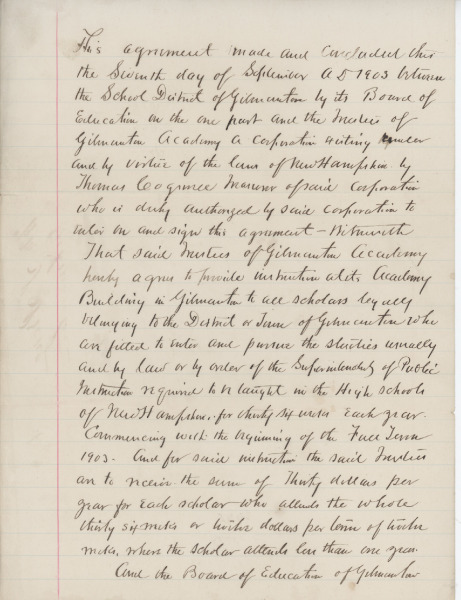 This agreement made and concluded this
the Seventh day of September A D 1903 between
the School District of Gilmanton by its Board of
Education on the one part and the Trustees of
Gilmanton Academy a corporation existing under
and by virtue of the laws of New Hampshire by
Thomas Cogswell Treasurer of said corporation
who is duly authorized by said corporation to
enter on and sign this agreement - Witnesseth
That said Trustees of Gilmanton Academy
hereby agree to provide instruction at its Academy
Building in Gilmanton to all scholars legally
belonging to the District or Town of Gilmanton who
are fitted to enter and pursue the studies usually
and by law or by order of the Superintendent of Public
Instruction required to be taught in the High schools
of New Hampshire. for thirty six weeks Each year.
Commencing with the beginning of the Fall Term
1903 - And for said instruction the said Trustees
are to receive the sum of Thirty dollars per
year for Each scholar who attends the whole
thirty six weeks or twelve dollars per term of twelve
weeks, where the scholar attends less than one year.
And the Board of Education of Gilmanton